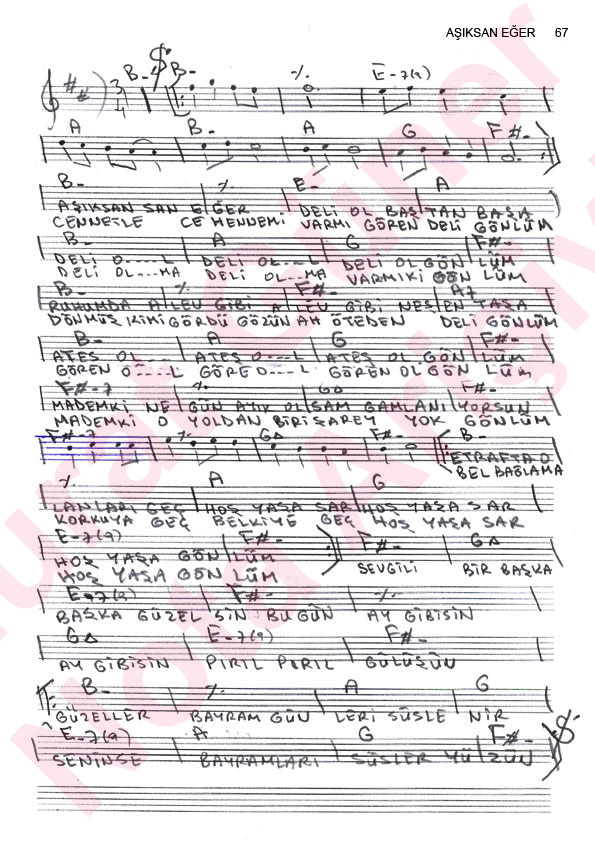 AŞIKSAN EĞER 67
B- B- ٪ E-7(9)
3
4
A B- A G F#-
B- ٪ E- A
AŞIKSAN SAN EĞER DELİ OL BAŞTAN BAŞA
CENNETLE CEHENNEMİ VARMI GÖREN DELİ GÖNLÜM
B- A G F#-
DELİ O----L DELİ O----L DELİ OL GÖN LÜM
DELİ OL---MA DELİ OL---MA VARMIKİ GÖN LÜM
B- ٪ F#- A7
RUHUMDA ALEV GİBİ ALEV GİBİ NEŞ EN TAŞA
DÖNMÜŞ KİMİ GÖRDÜ GÖZÜN AH ÖTEDEN DELİ GÖNLÜM
B- A G F#-
ATEŞ OL--- ATEŞ O---L ATEŞ OL GÖN LÜM
GÖREN O----L GÖRE O---L GÖREN OL GÖN LÜM
F#-7 ٪ G△ F#-
MADEMKİ NE GÜN AYIK OLSAM GAMLANIYORSUN
MADEMKİ O YOLDAN BİRİ SAREY YOK GÖNLÜM
F#-7 ٪ G△ F#- B-
ETRAFTA O
BEL BAĞLAMA
٪ A G
LANLARI GEÇ HOŞ YAŞA SAR HOŞ YAŞA SAR
KORKUYA GEÇ BELKİYE GEÇ HOŞ YAŞA SAR
E-7(9) F#- F#- G△
HOŞ YAŞA GÖN LÜM SEVGİLİ BİR BAŞKA
HOŞ YAŞA GÖN LÜM
E-7(9) F#- ٪
BAŞKA GÜZEL SİN BUGÜN AY GİBİSİN
G△ E-7(9) F#-
AY GİBİSİN PIRIL PIRIL GÜLÜŞÜN
B- ٪ A G
GÜZELLER BAYRAM GÜN LERİ SÜSLE NİR
E-7(9) A G F#-
SENİNSE BAYRAMLARI SÜSLER YÜ ZÜN
Nota Arşivi